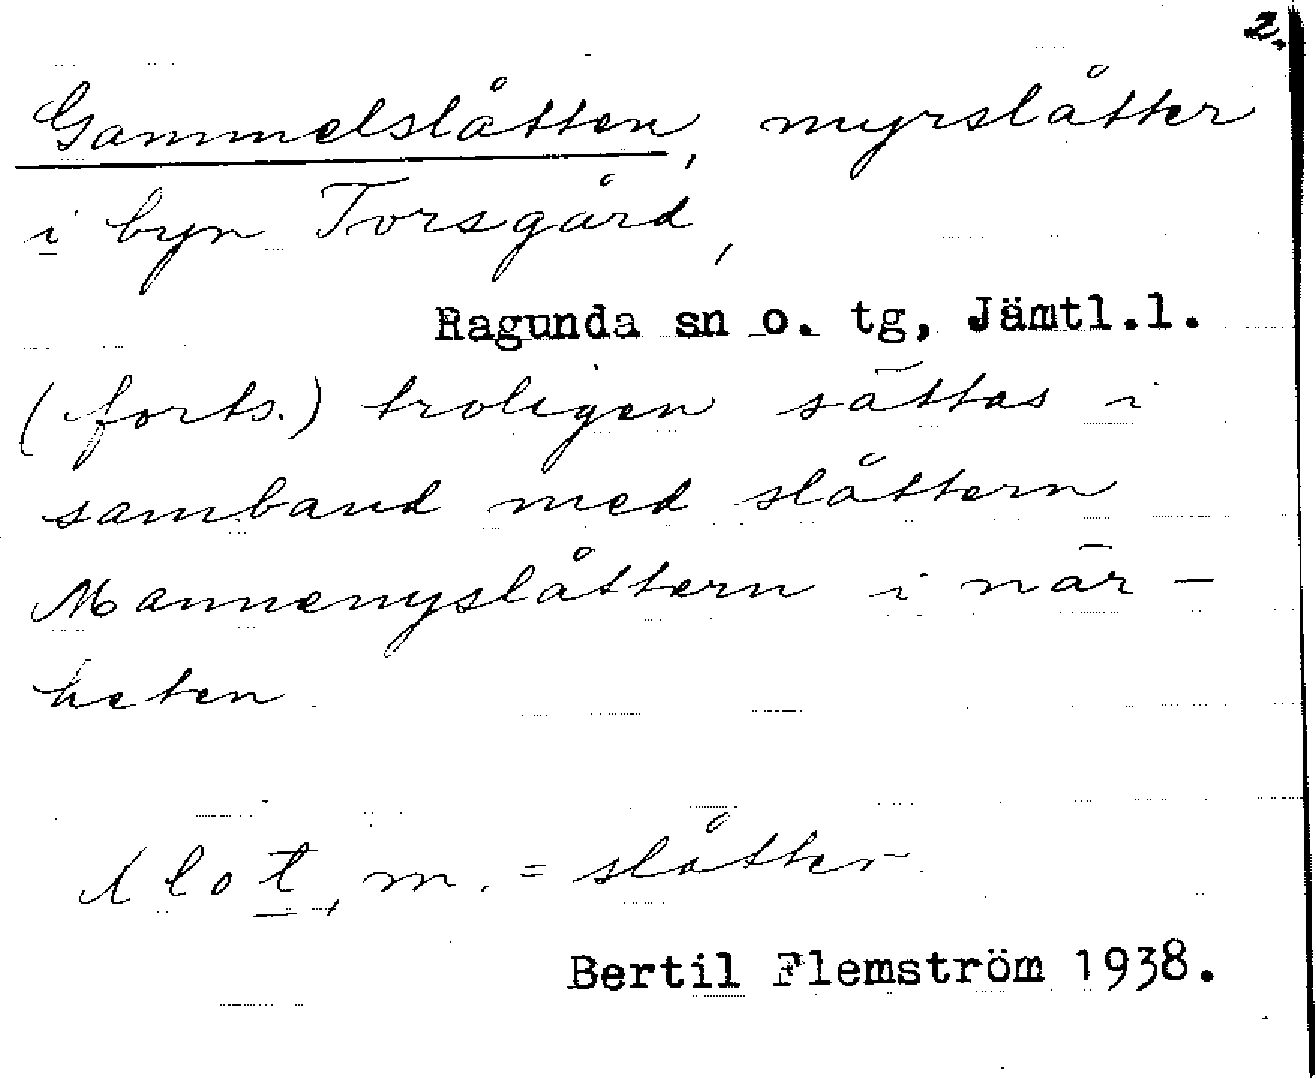 2.
Gammelslåtten, myrslåtter
i byn Torsgård,
Ragunda sn o. tg, Jämtl.l.
(forts.) troligen sättas i
samband med slåttern
Mannemyslåttern i när-
heten.
slot, m. = slåtter
Bertil Flemström 1938.